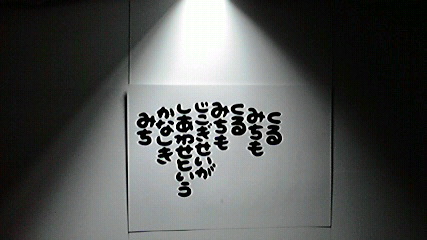 くる
みちも
くる
みちも
じこぎせいが
しあわせという
かなしき
みち